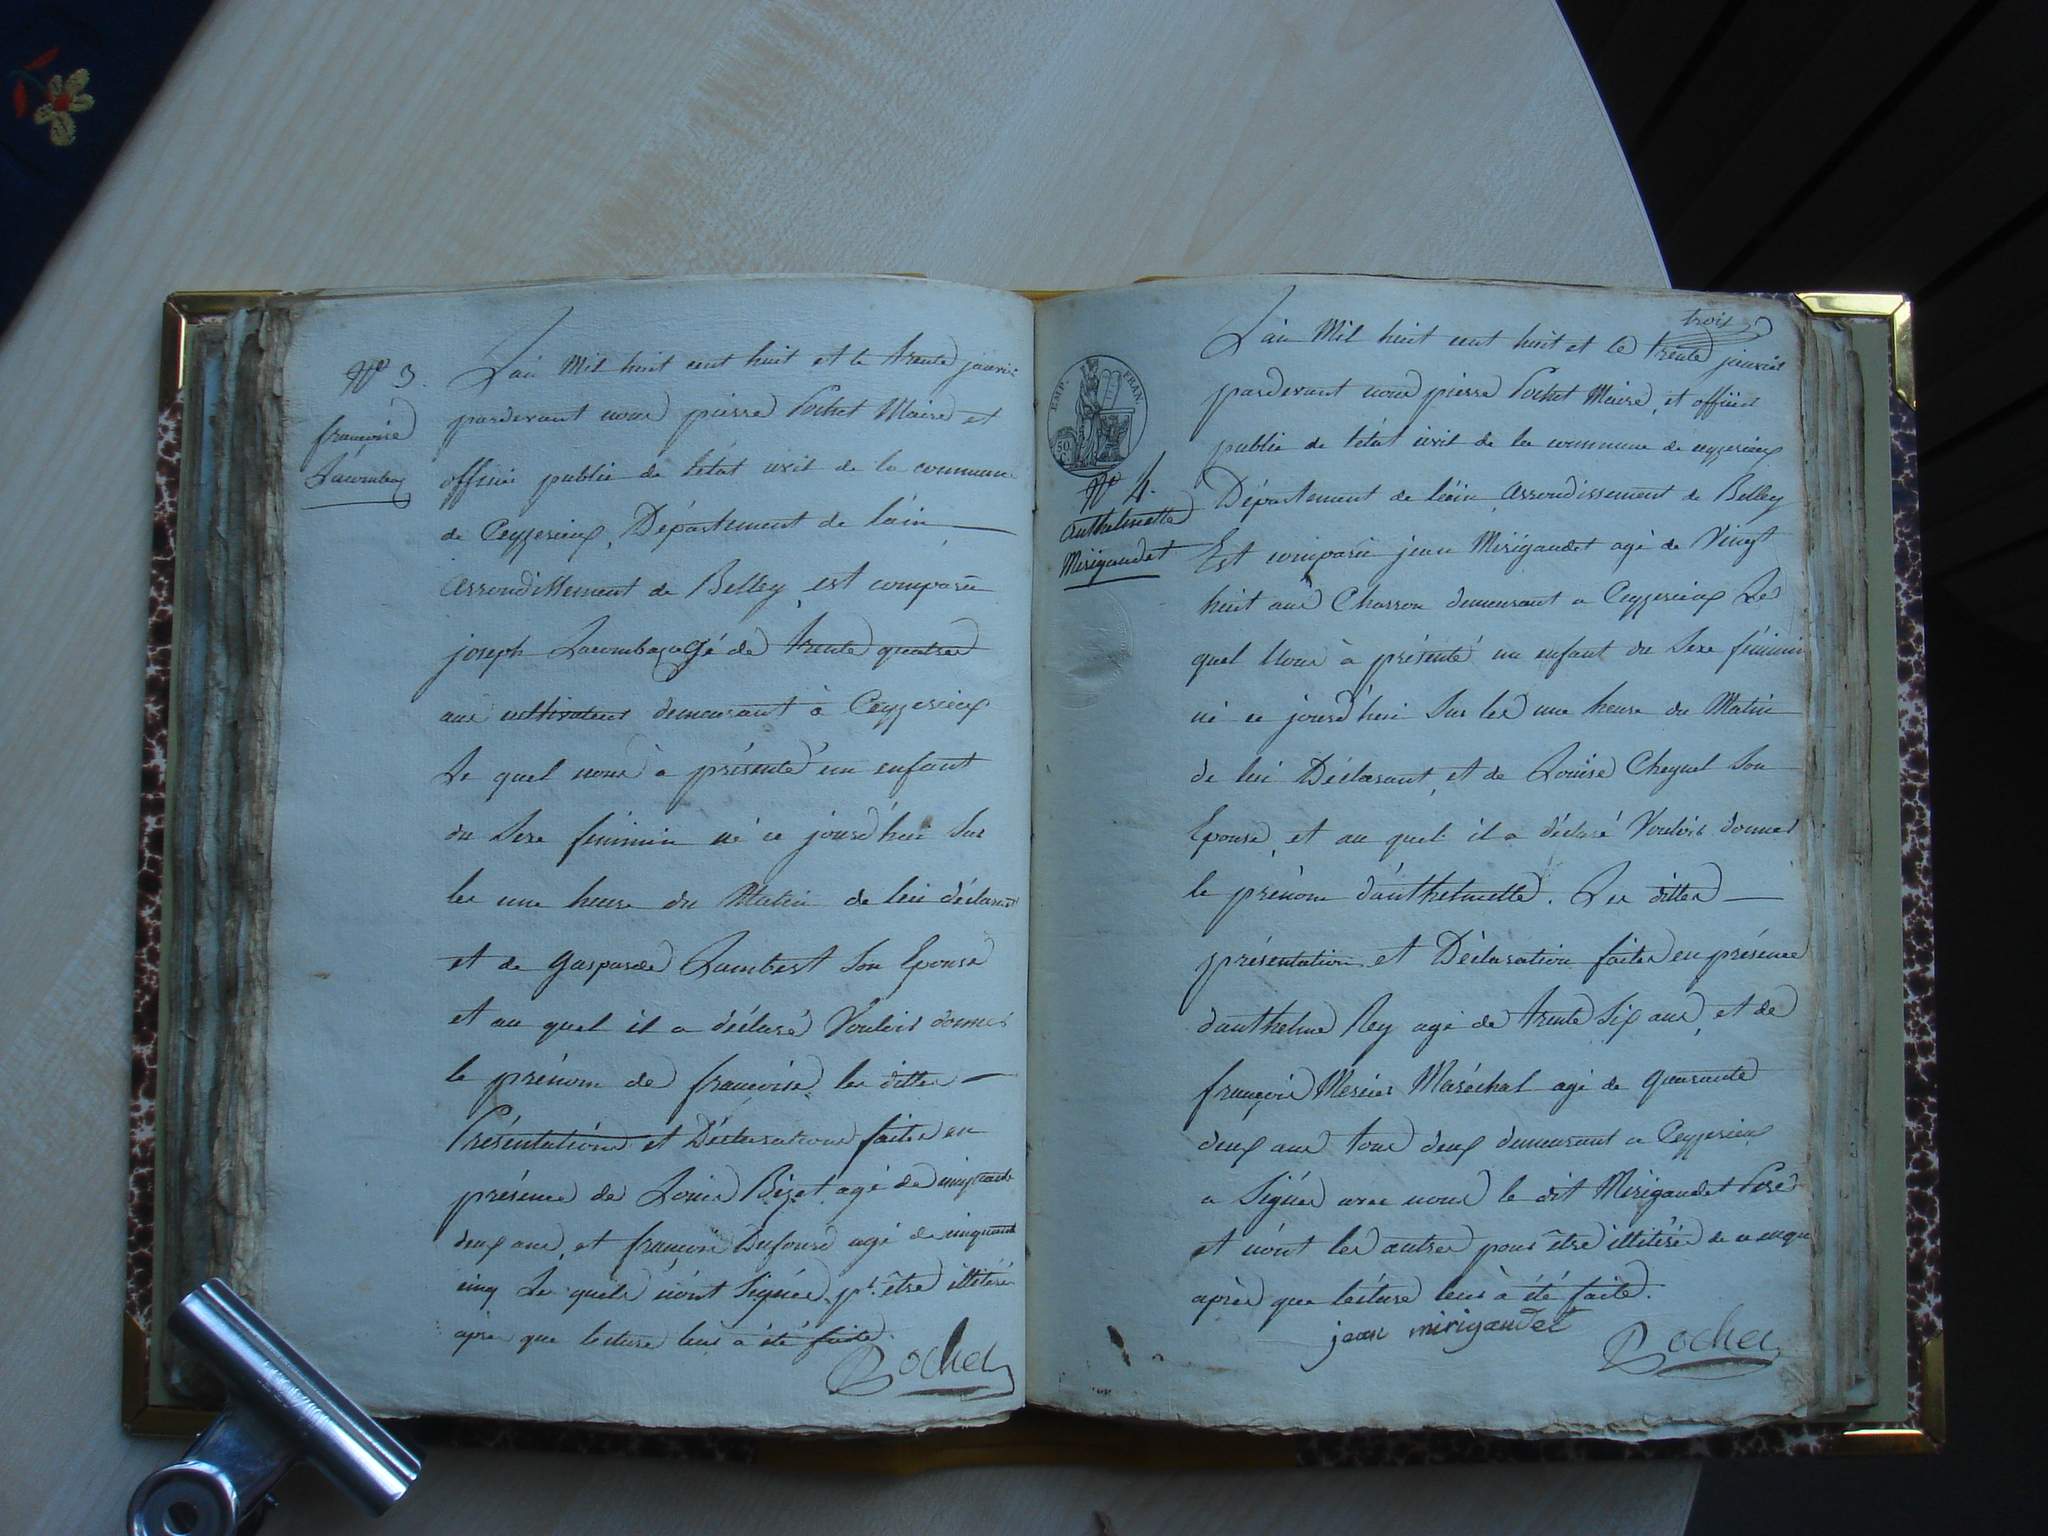 N° 3.
françoise
L'an Mil huit cent huit et le trente janvier
pardevant nous pierre Pochet Maire et
officier public de létat civil de la commune
de Ceyzerieux, Département de lain
arrondissement de Belley, est comparu
joseph agé de trente quatre
ans cultivateur demeurant à Ceyzerieux
Le quel nous à présenté un enfant
du Sexe féminin né ce jourd'hui Sur
les une heure du Matin de lui déclarant
et de Gasparde Lambert Son Epouse
et au quel il a déclaré Vouloir donner
le prénom de françoise, les dittes
Présentations et Déclarations faites en
présence de Louis Bizet agé de cinquante
deux ans, et françois Dufour agé de cinquante
cinq Les quels n'ont Signés pr. être illitérés
après que lecture leur à été faite.
Pochet
trois
EMP. FRAN.
50
N° 4.
Anthelmette
Mirigaudet
L'an Mil huit cent huit et le trente janvier
pardevant nous pierre Pochet Maire, et officier
public de létat civil de la commune de ceyzerieux
Département de l'ain, arrondissement de Belley
Est comparu jean Mirigaudet agé de Vingt
huit ans Charron demeurant a Ceyzerieux Le
quel Nous à présenté un enfant du Sexe féminin
né ce jourd'hui Sur les une heure du Matin
de lui Déclarant, et de Louise Cheynel Son
Epouse, et au quel il a déclaré Vouloir donner
le prénom d'anthelmette. Les dittes
présentation et Déclaration faites en présence
d'anthelme Rey agé de trente Six ans, et de
françois Mercier Maréchal agé de quarante
deux ans tous deux demeurant a Ceyzerieux
a Signés avec nous le dit Mirigaudet Père
et n'ont les autres pour être illitérés de ce enquis
après que lecture leur à été faite.
jean mirigaudet
Pochet